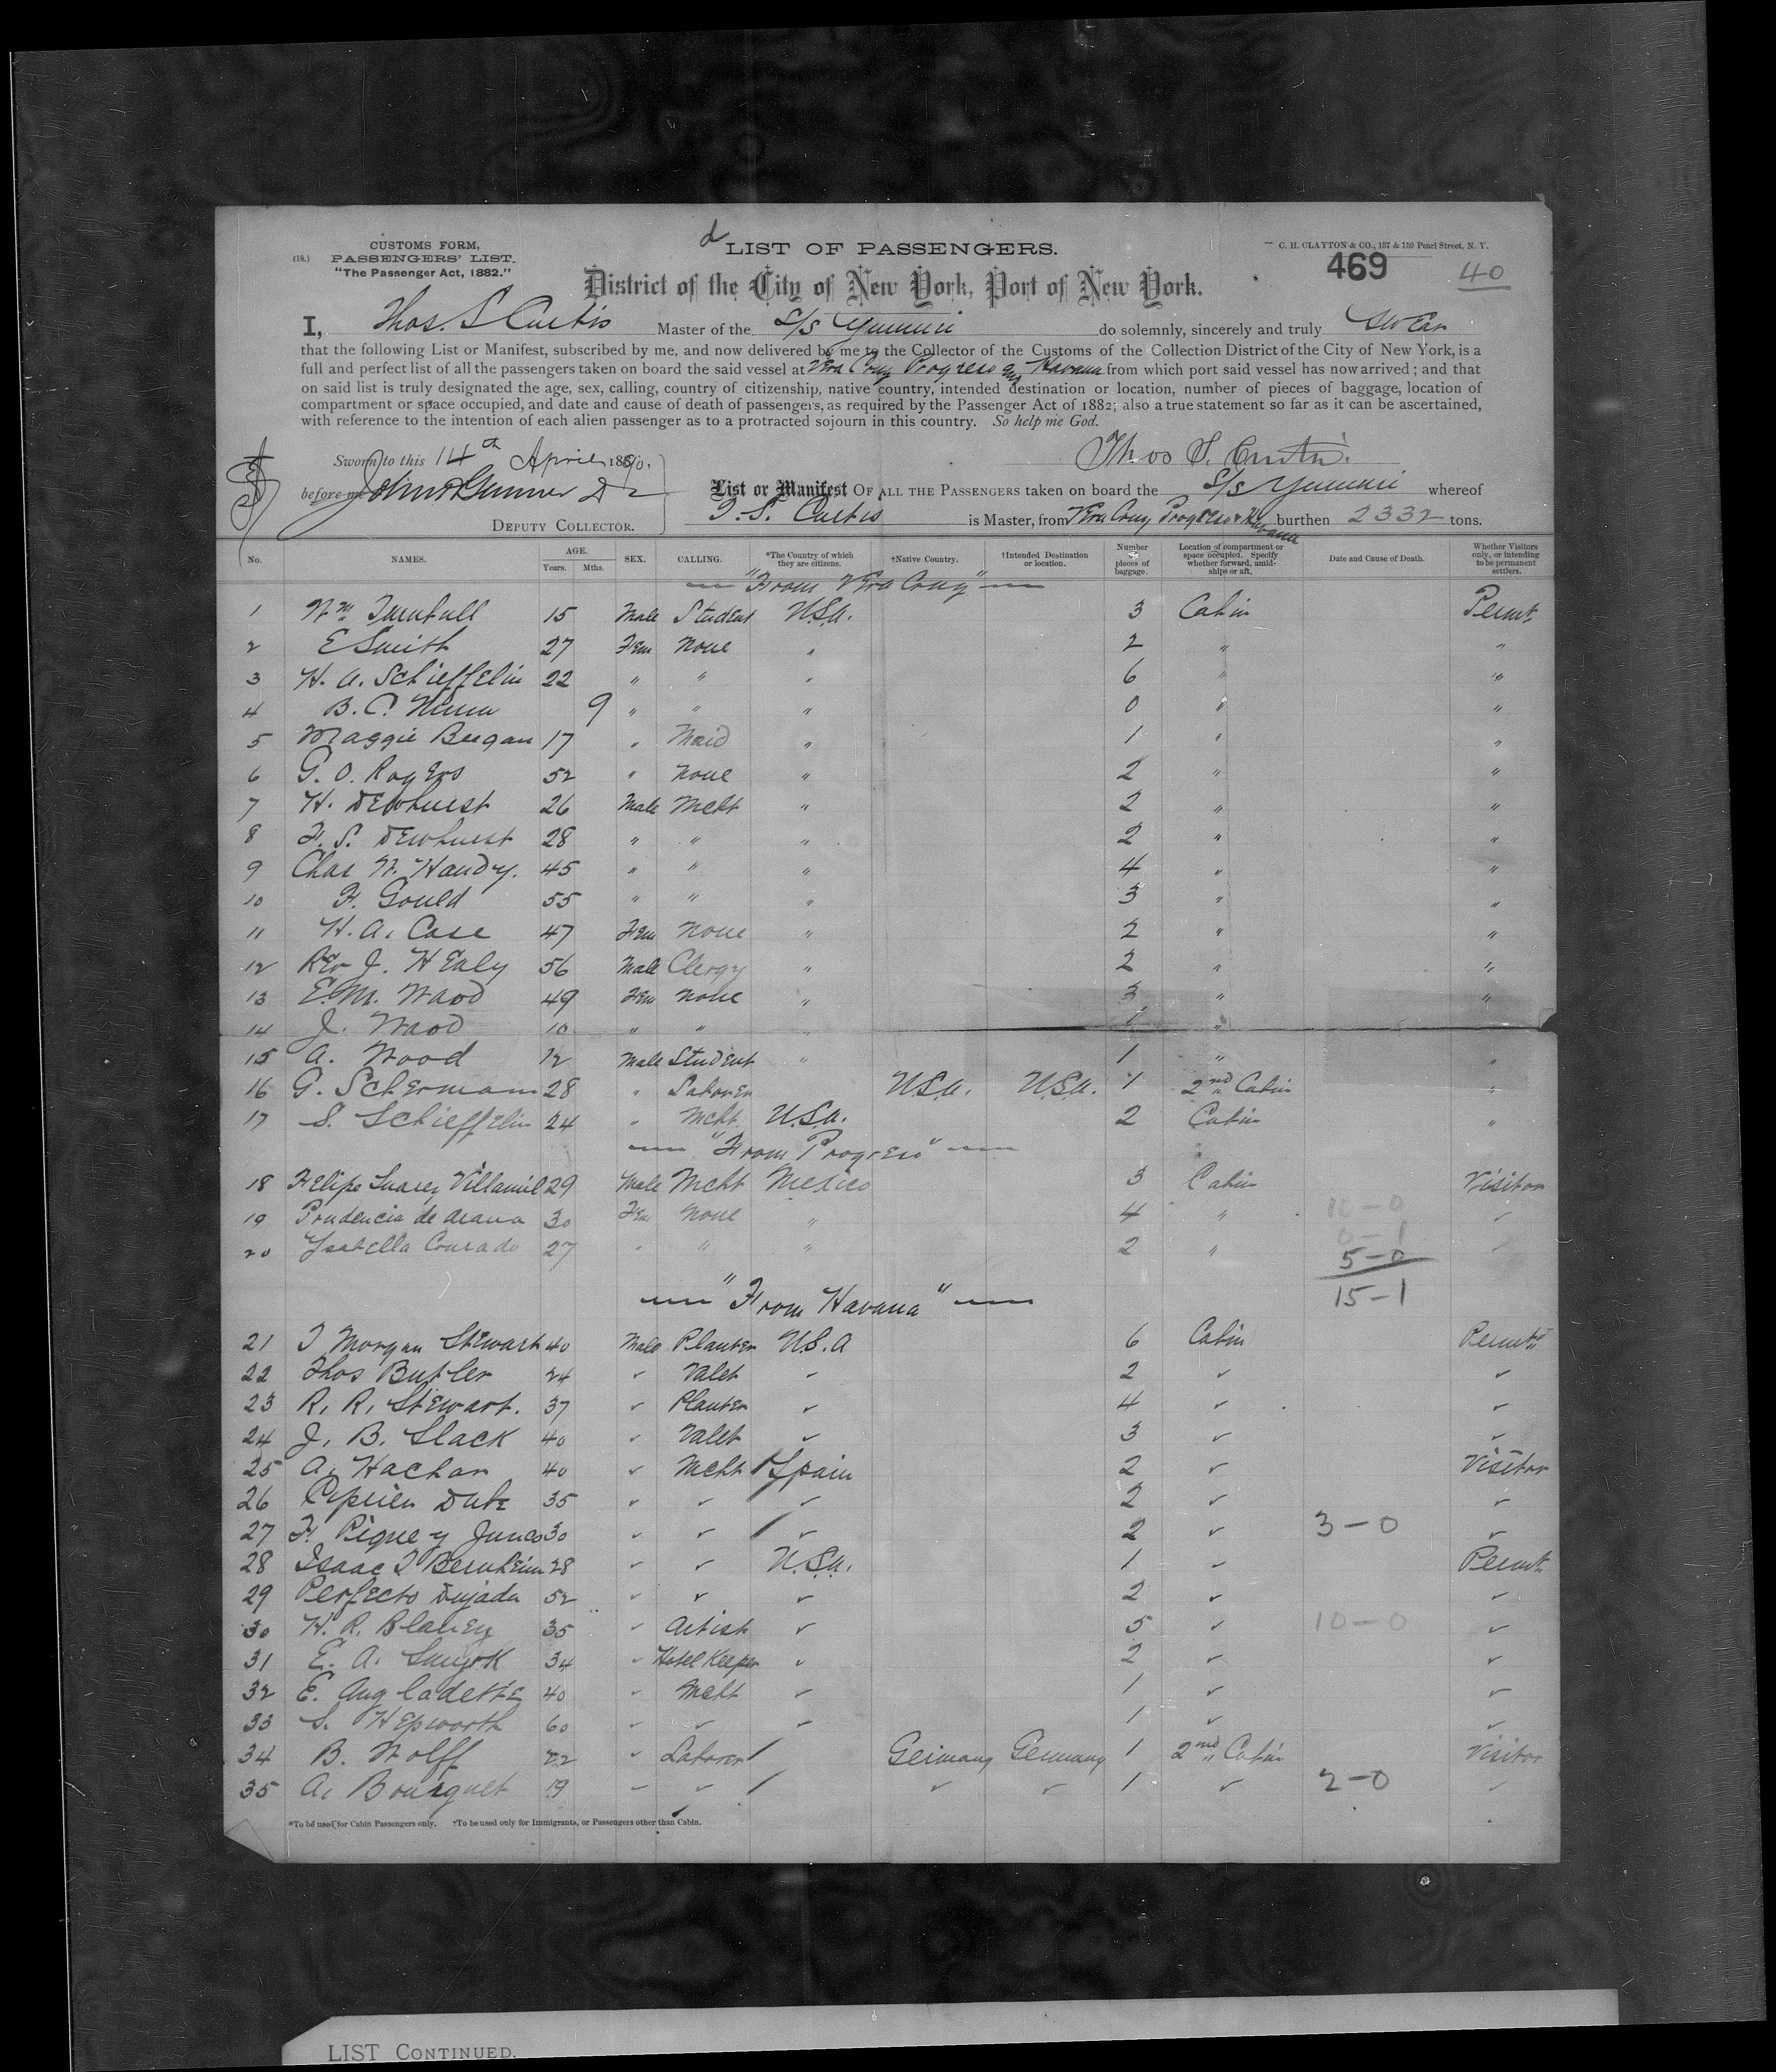 CUSTOMS FORM,
(18.) PASSENGERS' LIST.
"The Passenger Act, 1882."
LIST OF PASSENGERS.
C. H. CLAYTON & CO., 157 & 159 Pearl Street, N. Y.
469 40
District of the City of New York, Port of New York.
I, Thos. S. Curtis Master of the S/S Yumuri do solemnly, sincerely and truly swear
that the following List or Manifest, subscribed by me, and now delivered by me to the Collector of the Customs of the Collection District of the City of New York, is a
full and perfect list of all the passengers taken on board the said vessel at Vera Cruz Progreso and Havana from which port said vessel has now arrived; and that
on said list is truly designated the age, sex, calling, country of citizenship, native country, intended destination or location, number of pieces of baggage, location of
compartment or space occupied, and date and cause of death of passengers, as required by the Passenger Act of 1882; also a true statement so far as it can be ascertained,
with reference to the intention of each alien passenger as to a protracted sojourn in this country. So help me God.
Sworn to this 14th April 1890, Thos S. Curtis.
before me
DEPUTY COLLECTOR.
List or Manifest OF ALL THE PASSENGERS taken on board the S/S Yumuri whereof
T. S. Curtis is Master, from Vera Cruz Progreso & Havana burthen 2332 tons.
No. NAMES. AGE. Years. Mths. SEX. CALLING. *The Country of which they are citizens. †Native Country. †Intended Destination or location. Number of pieces of baggage. Location of compartment or space occupied. Specify whether forward, amidships or aft. Date and Cause of Death. Whether Visitors only, or intending to be permanent settlers.
"From Vera Cruz"
1 Wm. Turnbull 15 Male Student U.S.A. 3 Cabin Permt
2 E Smith 27 Fem None " 2 " "
3 H. A. Schieffelin 22 " " " 6 " "
4 B. C. 9 " " " 0 " "
5 Maggie Beegan 17 " Maid " 1 " "
6 G. O. Rogers 52 " None " 2 " "
7 H. Dewhurst 26 Male Mcht " 2 " "
8 F. S. Dewhurst 28 " " " 2 " "
9 Chas W. Handy. 45 " " " 4 " "
10 F. Gould 55 " " " 3 " "
11 H. A. Case 47 Fem None " 2 " "
12 Rev J. Healy 56 Male Clergy " 2 " "
13 E. M. Wood 49 Fem None " 3 " "
14 J. Wood 10 " " " 1 "
15 A. Wood 12 Male Student " 1 " "
16 G. Schermann 28 " Laborer U.S.A. U.S.A. 1 2nd Cabin "
17 S. Schieffelin 24 " Mcht U.S.A. 2 Cabin "
"From Progreso"
18 Felipe Suarez Villamil 29 Male Mcht Mexico 3 Cabin Visitor
19 Prudencia de Arana 30 Fem None " 4 " 10-0 ✓
20 Ysabella Conrado 27 " " " 2 " 0-1 ✓
5-0
15-1
"From Havana"
21 T Morgan Stewart 40 Male Planter U.S.A 6 Cabin Permt
22 Thos Butler 24 ✓ Valet ✓ 2 ✓ ✓
23 R. R. Stewart. 37 ✓ Planter ✓ 4 ✓ ✓
24 J. B. Slack 40 ✓ Valet ✓ 3 ✓ ✓
25 A. Hachar 40 ✓ Mcht Spain 2 ✓ Visitor
26 Cyprien Dube 35 ✓ ✓ ✓ 2 ✓ ✓
27 F. Pique y Junco 30 ✓ ✓ ✓ 2 ✓ 3-0 ✓
28 Isaac I Bernheim 28 ✓ ✓ U.S.A. 1 ✓ Permt
29 Perfecto Dujada 52 ✓ ✓ ✓ 2 ✓ ✓
30 H. R. Blaney 35 ✓ Artist ✓ 5 ✓ 10-0 ✓
31 E. A. 34 ✓ Hotel Keeper ✓ 2 ✓ ✓
32 E. Angladette 40 ✓ Mcht ✓ 1 ✓ ✓
33 S. Hepworth 60 ✓ ✓ ✓ 1 ✓ ✓
34 B. Wolff 22 ✓ Laborer Germany Germany 1 2nd Cabin Visitor
35 A. Bourquet 19 ✓ ✓ ✓ ✓ 1 ✓ 2-0 ✓
*To be used for Cabin Passengers only. †To be used only for Immigrants, or Passengers other than Cabin.
LIST CONTINUED.